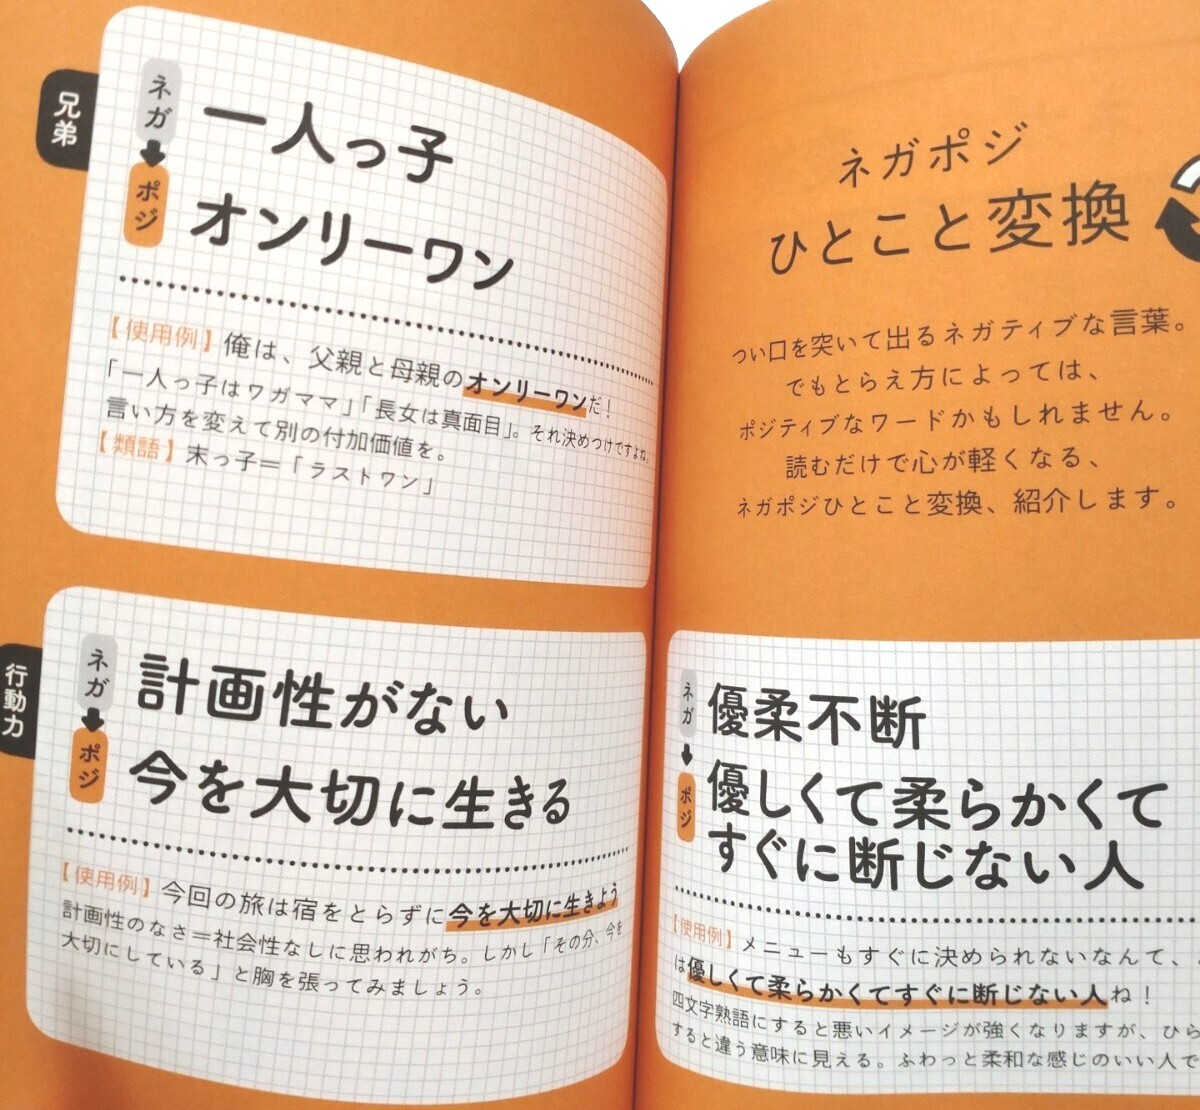 ネガポジ
ひとこと変換
つい口を突いて出るネガティブな言葉。
でもとらえ方によっては、
ポジティブなワードかもしれません。
読むだけで心が軽くなる、
ネガポジひとこと変換、紹介します。
ネガ
ポジ
優柔不断
優しくて柔らかくて
すぐに断じない人
【使用例】メニューもすぐに決められないなんて、
は優しくて柔らかくてすぐに断じない人ね！
四文字熟語にすると悪いイメージが強くなりますが、ひら
すると違う意味に見える。ふわっと柔和な感じのいい人で
兄弟
ネガ
ポジ
一人っ子
オンリーワン
【使用例】俺は、父親と母親のオンリーワンだ！
「一人っ子はワガママ」「長女は真面目」。それ決めつけですよね。
言い方を変えて別の付加価値を。
【類語】末っ子＝「ラストワン」
行動力
ネガ
ポジ
計画性がない
今を大切に生きる
【使用例】今回の旅は宿をとらずに今を大切に生きよう
計画性のなさ＝社会性なしに思われがち。しかし「その分、今を
大切にしている」と胸を張ってみましょう。